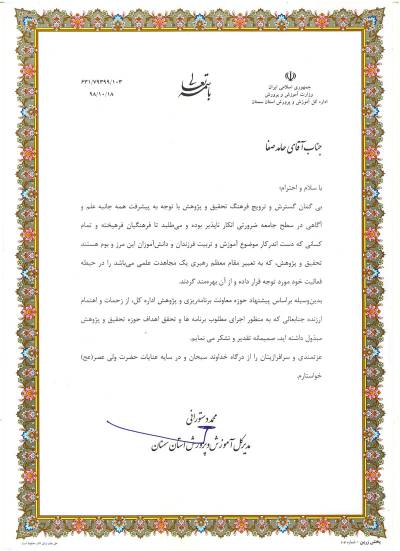 باسمه تعالی
جمهوری اسلامی ایران
وزارت آموزش و پرورش
اداره کل آموزش و پرورش استان سمنان
۶۳۱/۷۹۳۹۹/۱۰۳
۹۸/۱۰/۱۸
جناب آقای حامد صفا
با سلام و احترام؛
بی گمان گسترش و ترویج فرهنگ تحقیق و پژوهش با توجه به پیشرفت همه جانبه علم و
آگاهی در سطح جامعه ضرورتی انکار ناپذیر بوده و می‌طلبد تا فرهنگیان فرهیخته و تمام
کسانی که دست اندرکار موضوع آموزش و تربیت فرزندان و دانش‌آموزان این مرز و بوم هستند
تحقیق و پژوهش، که به تعبیر مقام معظم رهبری یک مجاهدت علمی می‌باشد را در حیطه
فعالیت خود مورد توجه قرار داده و از آن بهره‌مند گردند.
بدین‌وسیله براساس پیشنهاد حوزه معاونت برنامه‌ریزی و پژوهش اداره کل، از زحمات و اهتمام
ارزنده جنابعالی که به منظور اجرای مطلوب برنامه ها و تحقق اهداف حوزه تحقیق و پژوهش
مبذول داشته اید، صمیمانه تقدیر و تشکر می نمایم.
عزتمندی و سرافرازیتان را از درگاه خداوند سبحان و در سایه عنایات حضرت ولی عصر(عج)
خواستارم.
محمد دستورانی
مدیر کل آموزش و پرورش استان سمنان
پخش زرین